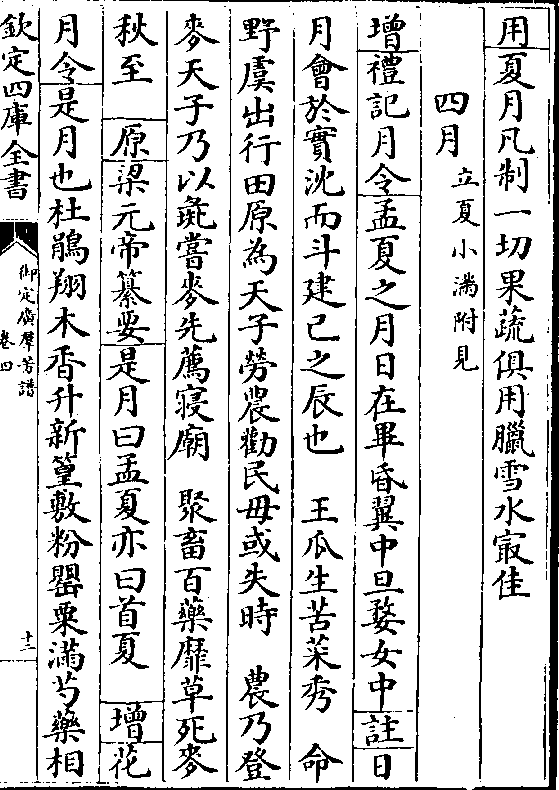 用夏月凡制一切果蔬俱用臘雪水㝡佳
四月 立夏小滿附見
增禮記月令孟夏之月日在畢昏翼中旦婺女中註日
月會於實沈而斗建巳之辰也 王瓜生苦菜秀 命
野虞出行田原為天子勞農勸民毋或失時 農乃登
麥天子乃以彘嘗麥先薦寢廟 聚畜百藥靡草死麥
秋至 原梁元帝纂要是月曰孟夏亦曰首夏 增花
月令是月也杜鵑翔木香升新篁敷粉罌粟滿芍藥相
欽定四庫全書
御定廣羣芳譜
卷四
十三